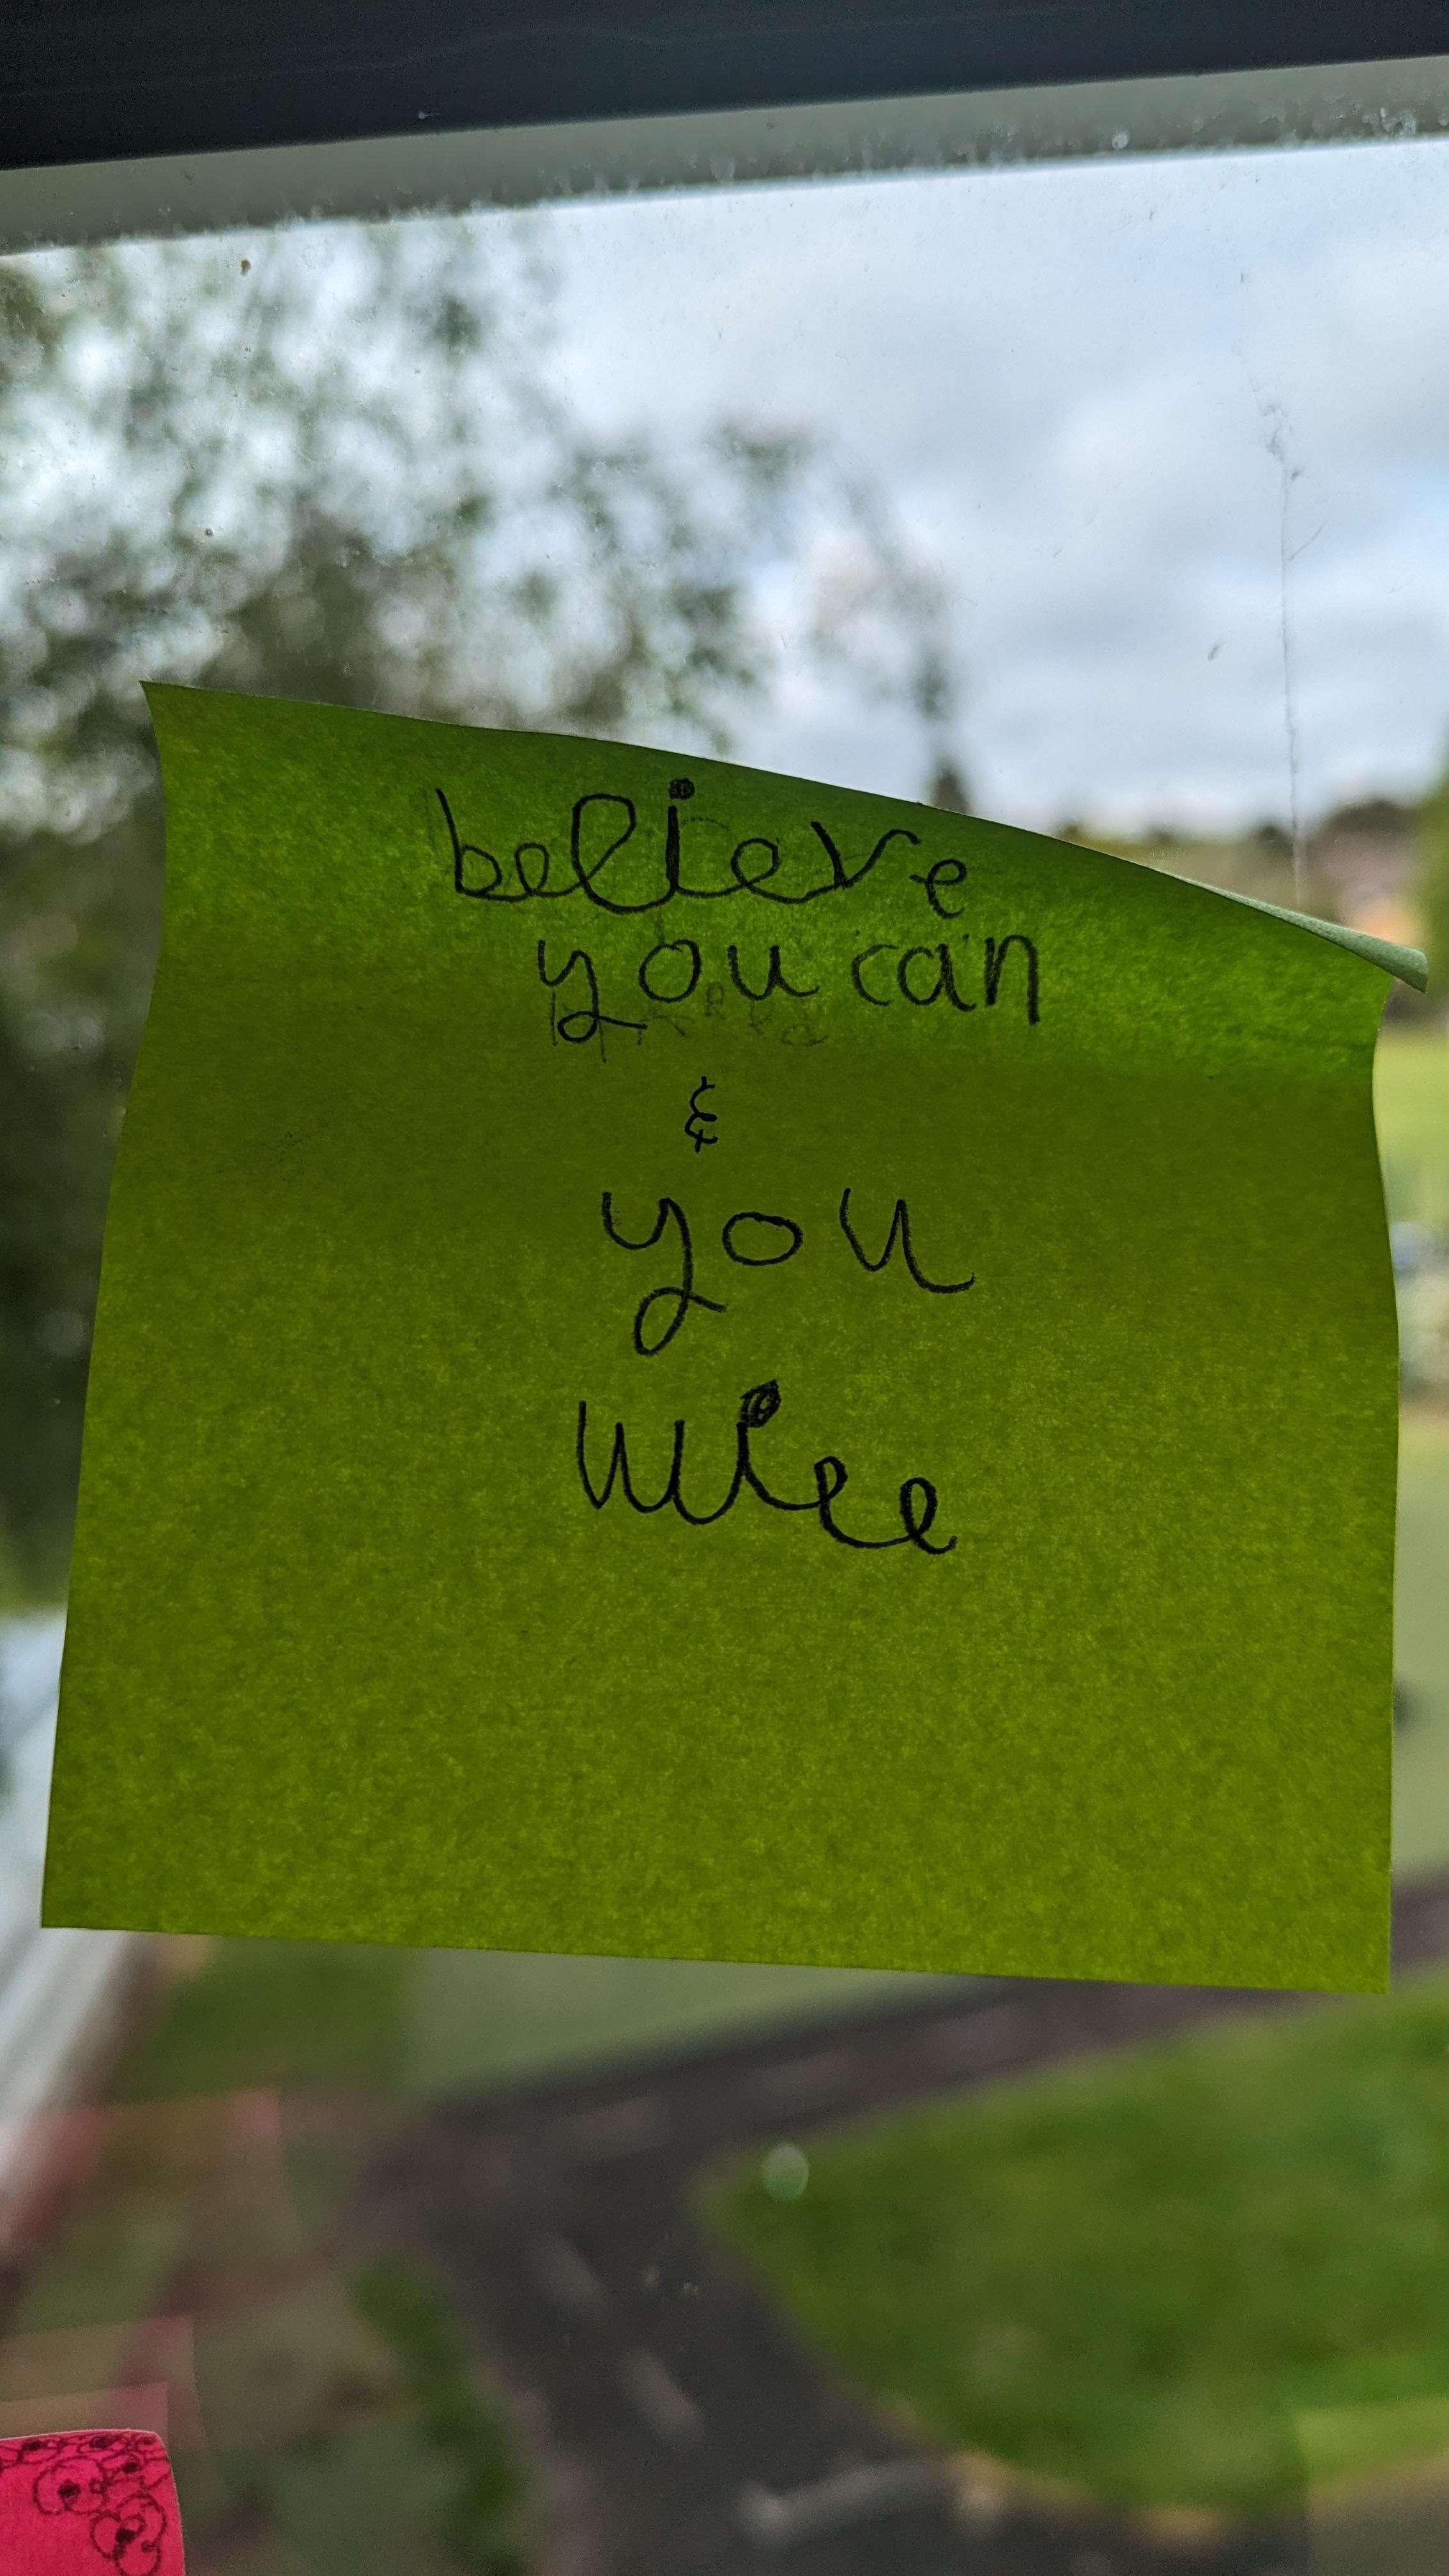 believe
you can
&
you
will